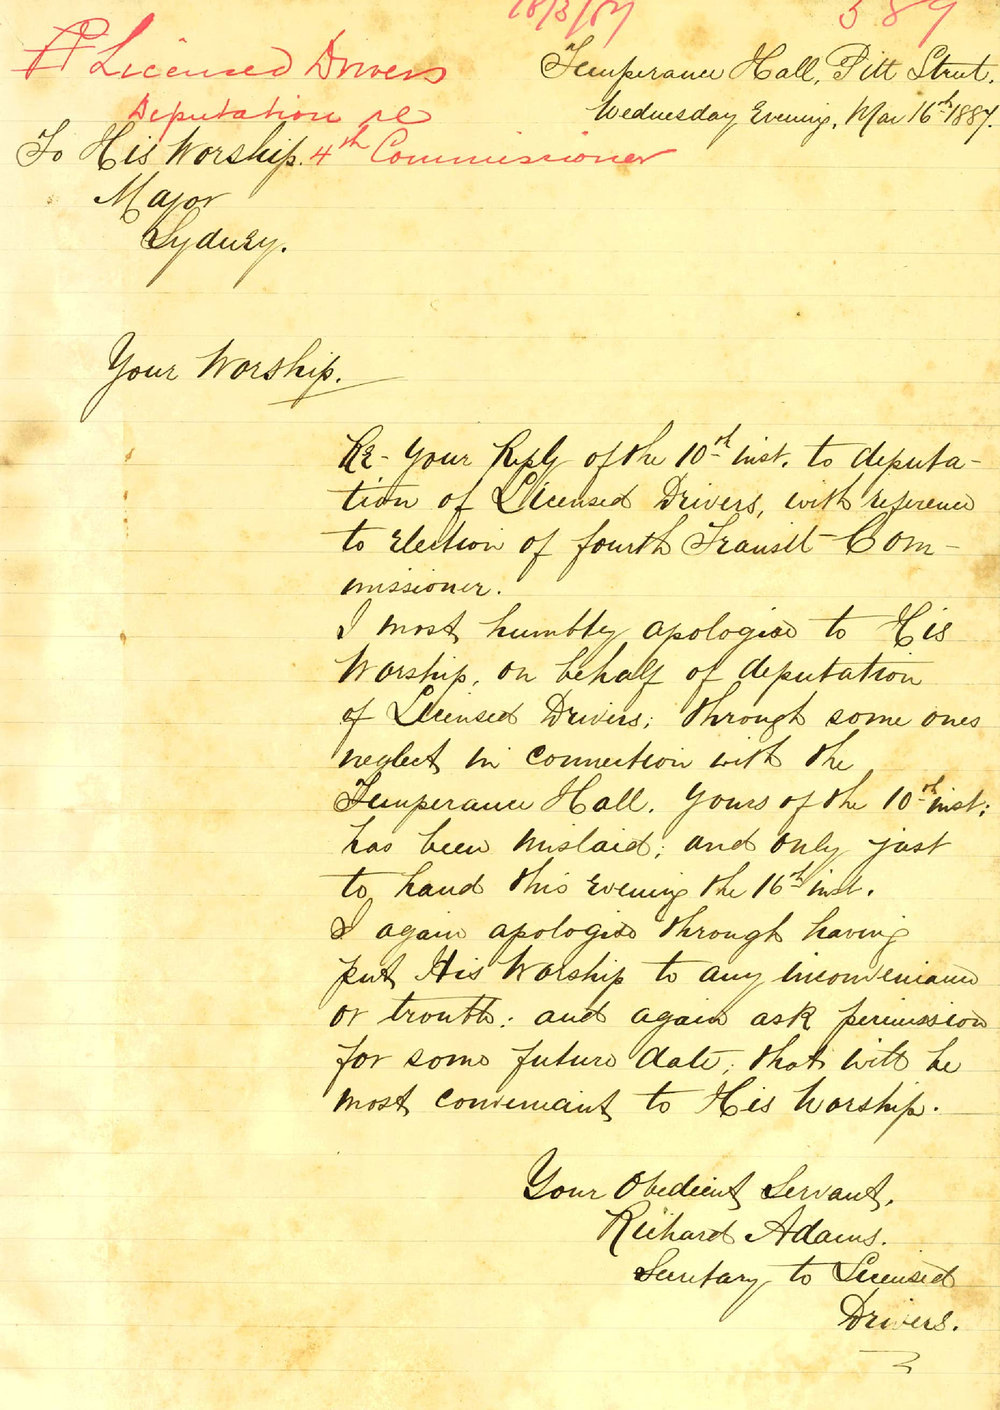 18/3/87
589
Licensed Drivers
Deputation re
4th Commissioner
Temperance Hall, Pitt Street.
Wednesday Evening, Mar 16th 1887.
To His Worship.
Mayor
Sydney.
Your Worship.
Re- Your Reply of the 10th inst. to deputa-
tion of Licensed Drivers, with reference
to Election of fourth Transit-Com-
missioner.
I most humbly apologise to His
Worship, on behalf of deputation
of Licensed Drivers; through some ones
neglect in connection with the
Temperance Hall. Yours of the 10th inst;
has been mislaid; and only just
to hand this Evening the 16th inst.
I again apologise through having
put His Worship to any inconveniance
or trouble; and again ask permission
for some future date; that will be
most conveniant to His Worship.
Your Obedient Servant,
Richard Adams.
Secretary to Licensed
Drivers.